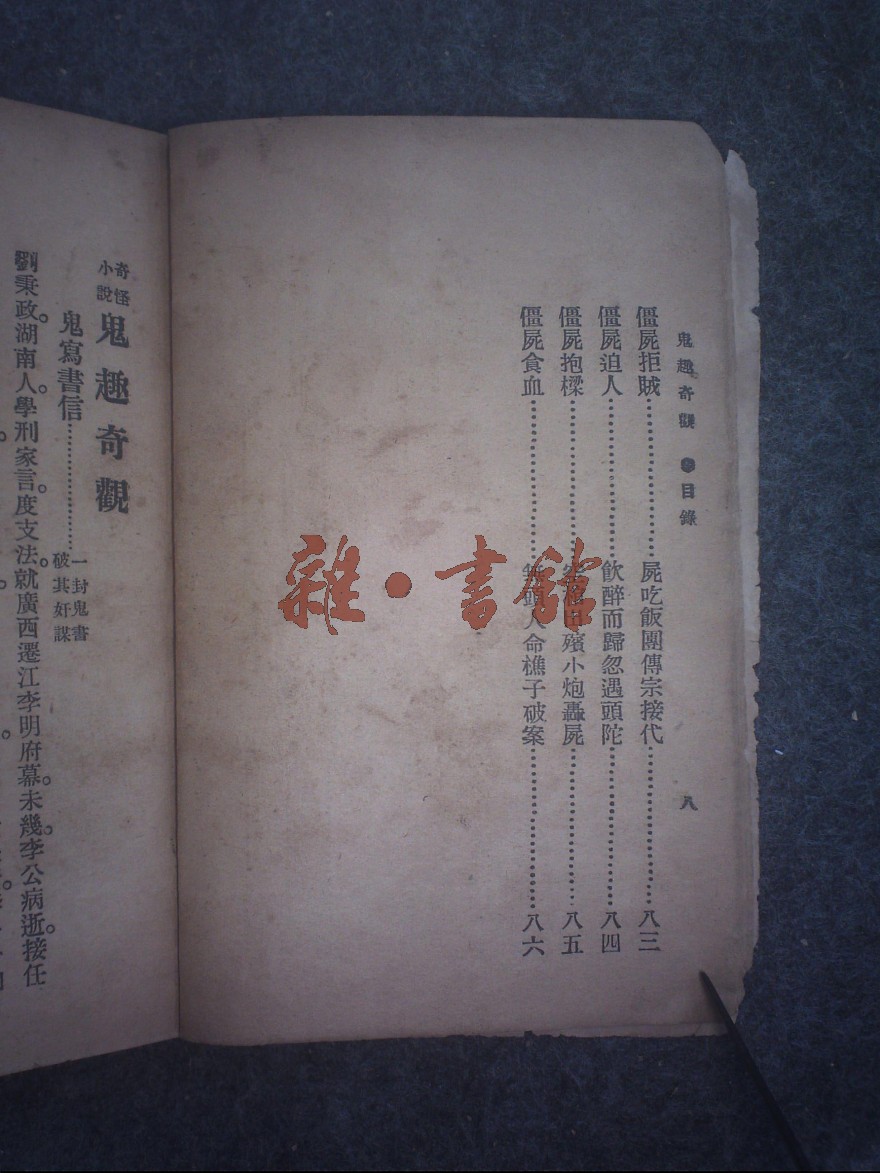 鬼趣奇觀 ●目錄 八
僵屍拒賊………………屍吃飯團傳宗接代………………八三
僵屍迫人………………飲醉而歸忽遇頭陀………………八四
僵屍抱樑………………殯小炮轟屍………………八五
僵屍食血………………人命樵子破案………………八六
奇怪小說 鬼趣奇觀
鬼寫書信………………一封鬼書破其奸謀
劉秉政。湖南人。學刑家言。度支法。就廣西遷江李明府幕。未幾。李公病逝。接任
雜·書館